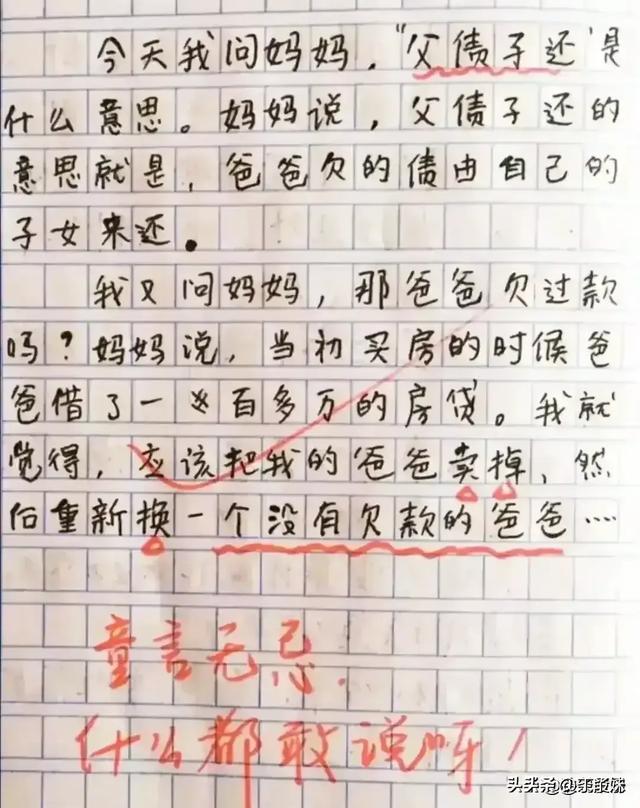 今天我问妈妈，“父债子还”是
什么意思。妈妈说，父债子还的
意思就是，爸爸欠的债由自己的
子女来还。
我又问妈妈，那爸爸欠过款
吗？妈妈说，当初买房的时候爸
爸借了一百多万的房贷。我就
觉得，应该把我的爸爸卖掉，然
后重新换一个没有欠款的爸爸……
童言无忌.
什么都敢说呀！
头条@